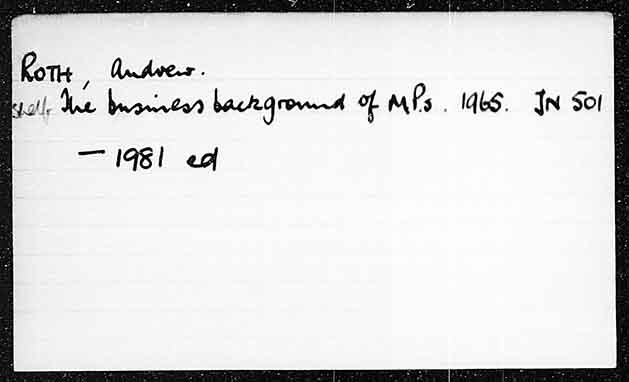 ROTH, Andrew.
Shelf. The business background of MPs. 1965. JN 501
— 1981 ed